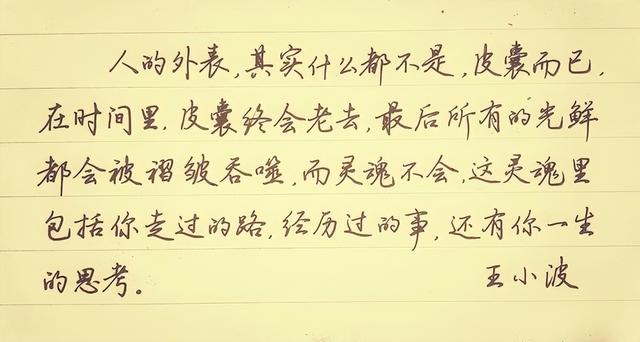 人的外表,其实什么都不是,皮囊而已,
在时间里,皮囊终会老去,最后所有的光鲜
都会被褶皱吞噬,而灵魂不会,这灵魂里
包括你走过的路,经历过的事,还有你一生
的思考。 王小波